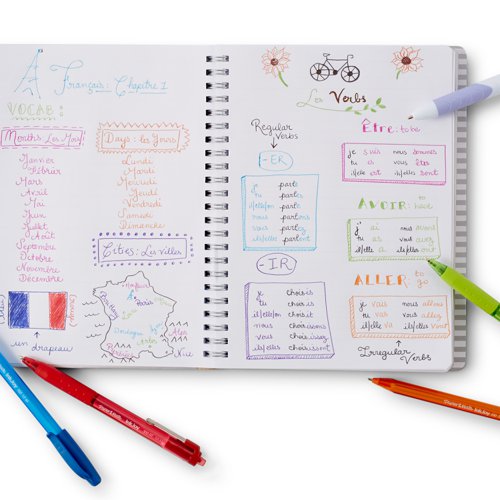 Français: Chapitre 1
VOCAB:
Months: Les Mois
Janvier
Février
Mars
Avril
Mai
Juin
Juillet
Août
Septembre
Octobre
Novembre
Décembre
Days: les Jours
Lundi
Mardi
Mercredi
Jeudi
Vendredi
Samedi
Dimanche
Cities: Les villes
Paris
Nice
un drapeau
Les Verbs
Regular
Verbs
-ER
je parle
tu parles
il/elle/on parle
nous parlons
vous parlez
ils/elles parlent
-IR
je choisis
tu choisis
il/elle/on choisit
nous choisissons
vous choisissez
ils/elles choisissent
Être: to be
je suis nous sommes
tu es vous êtes
il/elle est ils/elles sont
AVOIR: to have
j' ai nous avons
tu as vous avez
il/elle a ils/elles ont
ALLER: to go
je vais nous allons
tu vas vous allez
il/elle va ils/elles vont
Irregular
Verbs